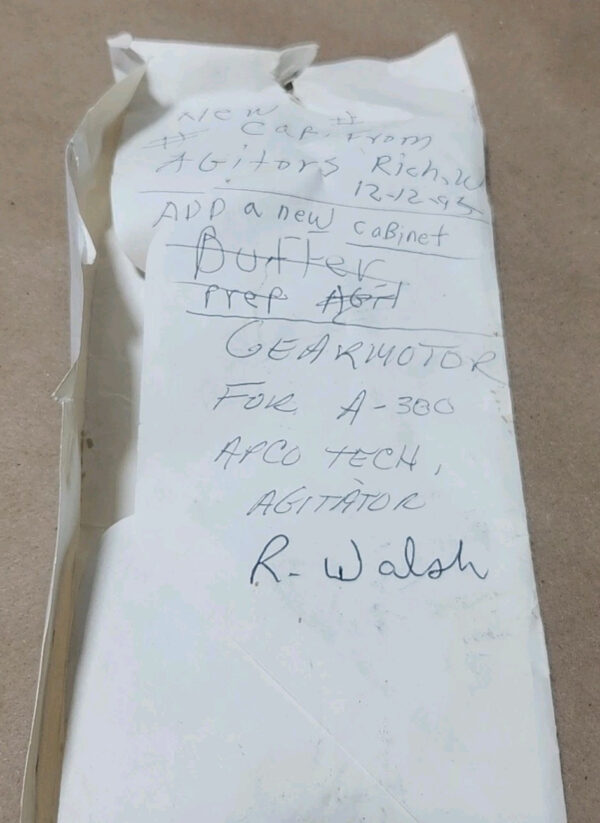 New #
# Cap. From
AGitors Rich.W
12-12-95
ADD a new cabinet
Buffer
Prep AGit
GEARMOTOR
FOR A-300
APCO TECH,
AGITATOR
R. Walsh